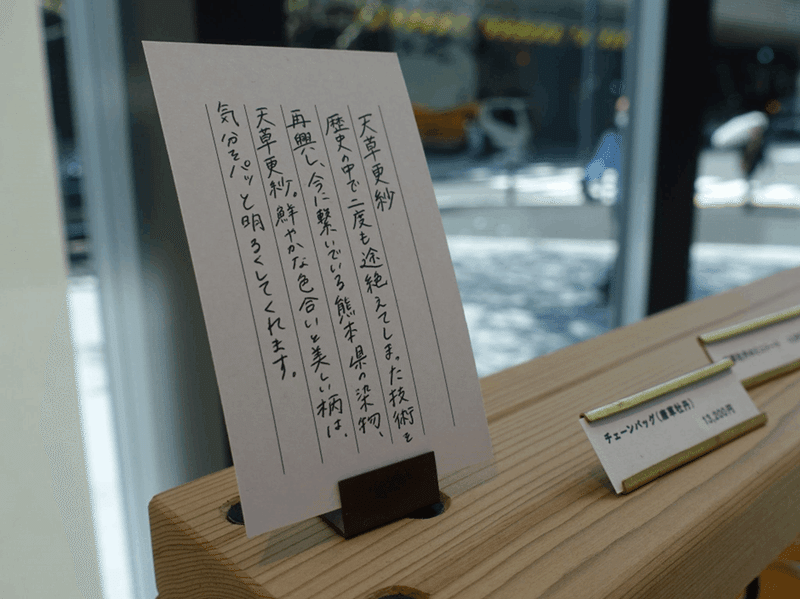 天草更紗
歴史の中で二度も途絶えてしまった技術を
再興し、今に繋いでいる熊本県の染物、
天草更紗。鮮やかな色合いと美しい柄は、
気分をパッと明るくしてくれます。
チェーンバッグ(唐草牡丹)
13,200円